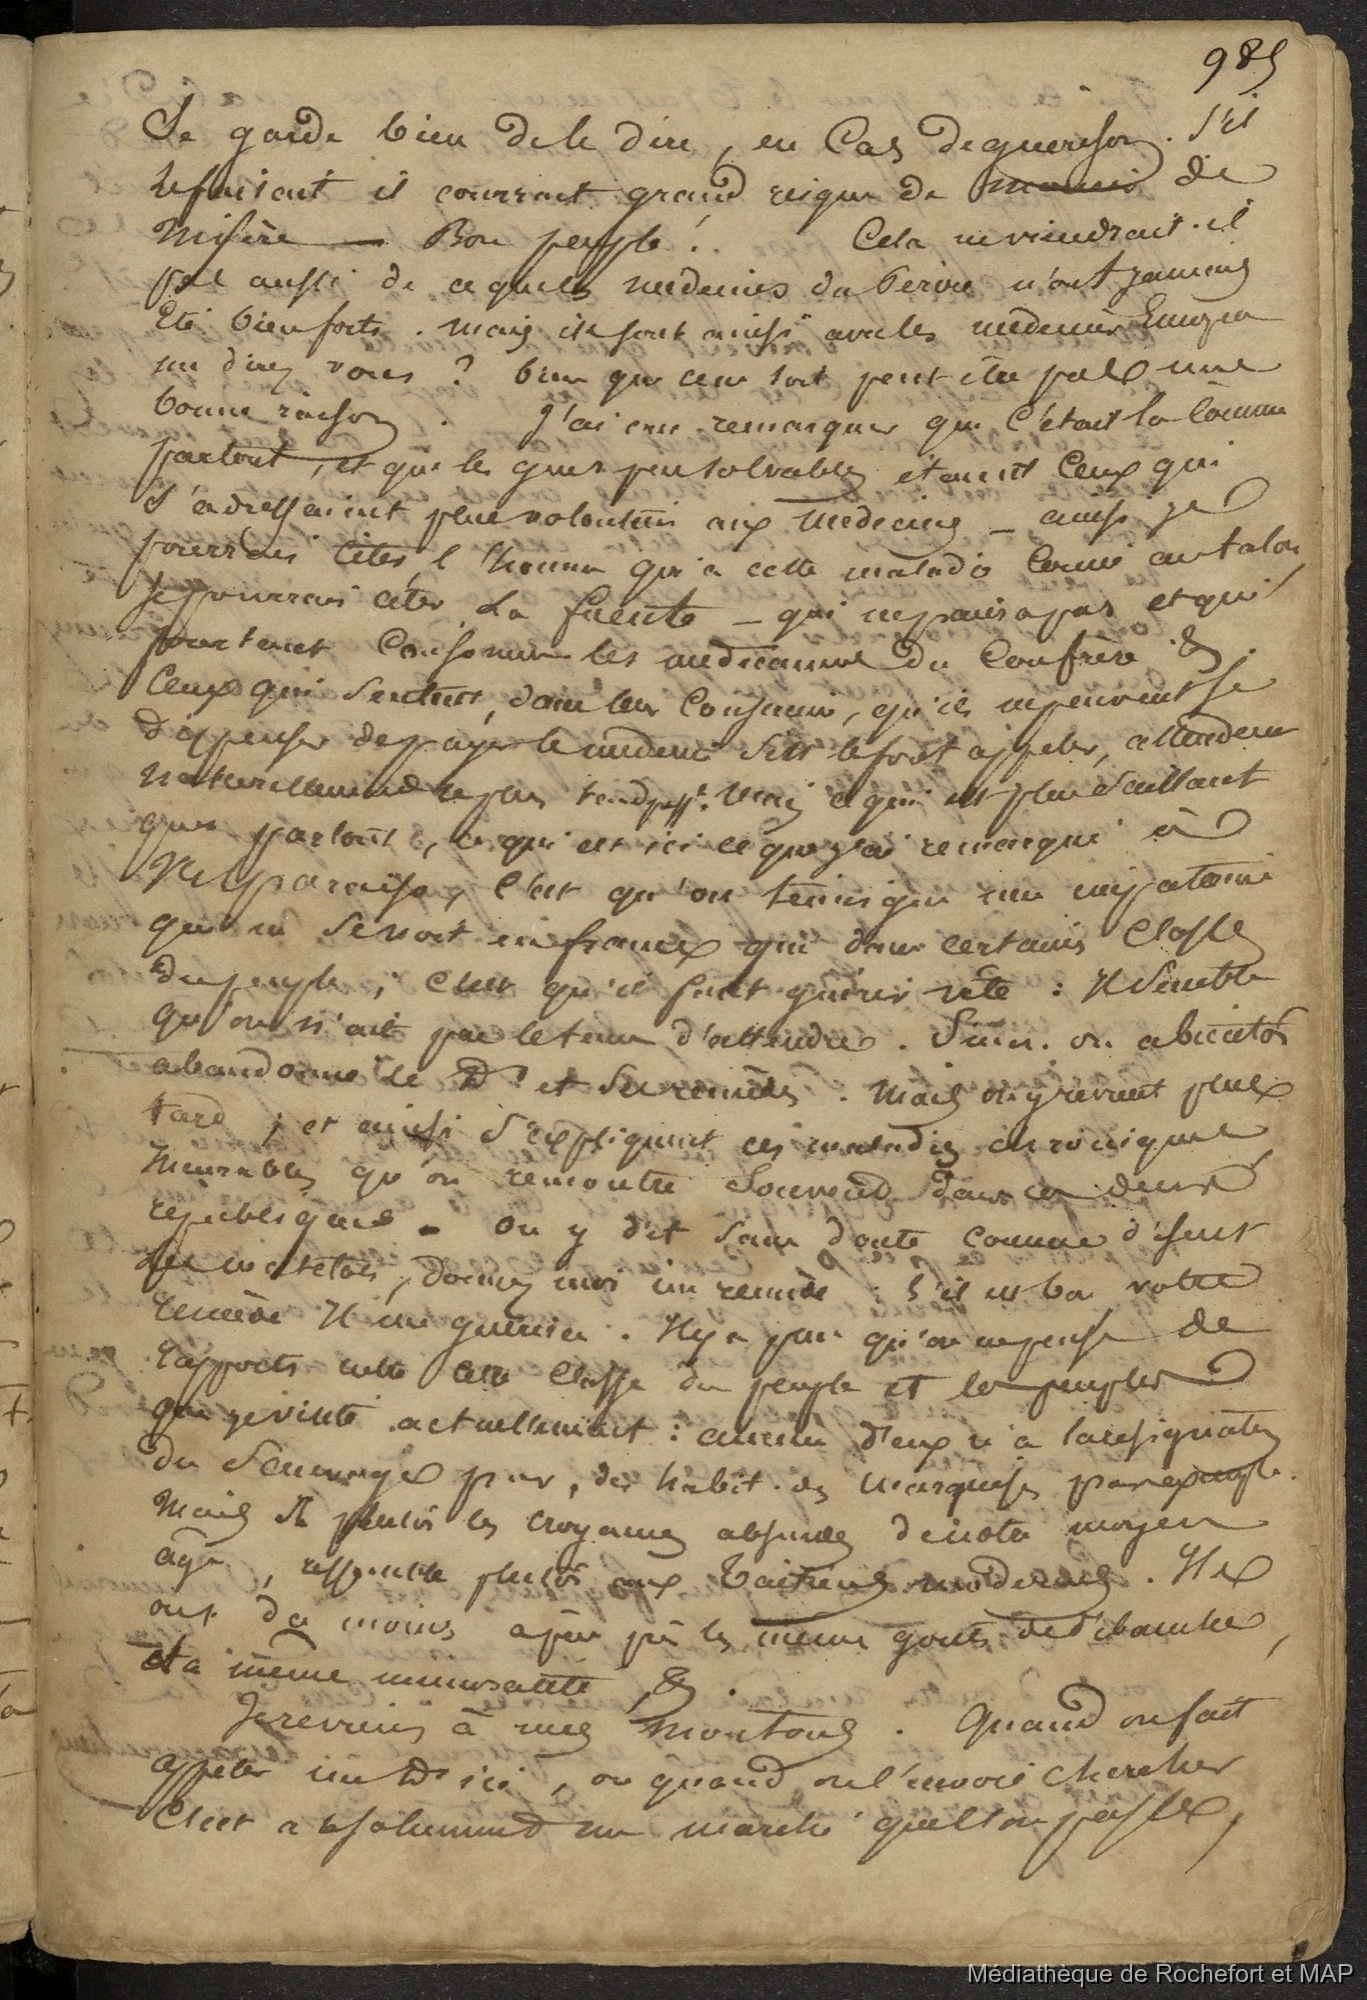 985
Se garde bien de le dire, en Cas de guerison. S'il
le faisait il courrait grand risque de de
Misère — Bon peuple! Cela ne viendrait-il
pas aussi de ce que les médecins du Pérou n'ont jamais
Eté bien forts. Mais ils sont ainsi avec les médecins
me direz vous? bien que ceci soit peut être pas une
bonne raison. J'ai cru remarquer que c'était la même
partout, et que les gens peu solvables étaient Ceux qui
s'adressaient plus volontiers aux Médecins — ainsi je
pourrais citer l'homme qui a cette maladie au talon
je pourrais citer La fuente — qui ne paiera pas et qui
pourtant Consomme les médicamens du Confrère &.
Ceux qui sentent, dans leur Conscience, qu'ils ne peuvent se
dispenser de payer le médecin s'ils le font appeler, attendent
naturellement le plus Mais ce qui est plus saillant
que partout, ce qui est ici ce que j'ai remarqué à
Valparaiso, C'est qu'on témoigne une impatience
qui ne se voit en france que dans certaines Classes
du peuple; C'est qu'il faut guérir vite: Il semble
qu'on n'ait pas le tems d'attendre. Sinon on a bientôt
abandonné le Dr et ses remèdes. Mais on y revient plus
tard; et ainsi s'expliquent ces maladies chroniques
incurables qu'on rencontre Souvent dans ces deux
républiques. On y dit sans doute comme disent
les matelots, donnez moi un remède. S'il est bon votre
remède Il me guérira. Il y a plus qu'on ne pense de
rapports entre cette Classe du peuple et les peuples
que je visite actuellement: aucun d'eux n'a la résignation
du Sauvage pur, des habit. des Marquises par exemple.
Mais a plutôt les croyances absurdes de notre moyen
age, ressemble plutôt aux Taïtiens modernes. Ils
ont du moins à peu près les mêmes goûts de débauche,
et la même immoralité, &.
Je reviens à mes Moutons. Quand on fait
appeler un Dr ici, ou quand on l'envoie chercher
C'est absolument un marché que l'on passe,
Médiathèque de Rochefort et MAP